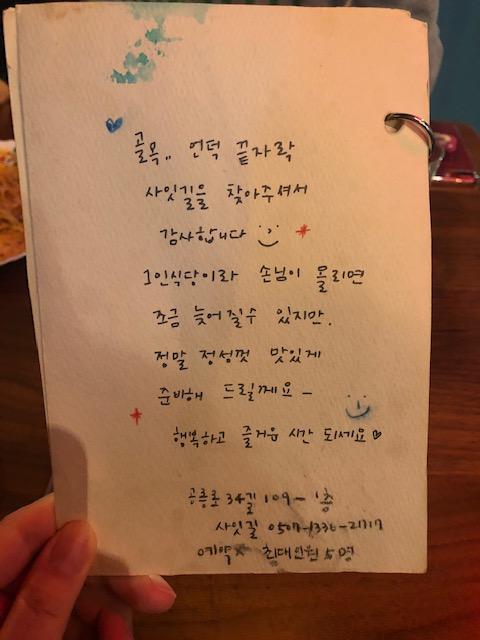 골목.. 언덕 끝자락
사잇길을 찾아주셔서
감사합니다
1인식당이라 손님이 몰리면
조금 늦어질수 있지만.
정말 정성껏 맛있게
준비해 드릴께요 –
행복하고 즐거운 시간 되세요♡
공릉로 34길 109 - 1층
사잇길 0507-1336-
예약 x 최대인원 5명